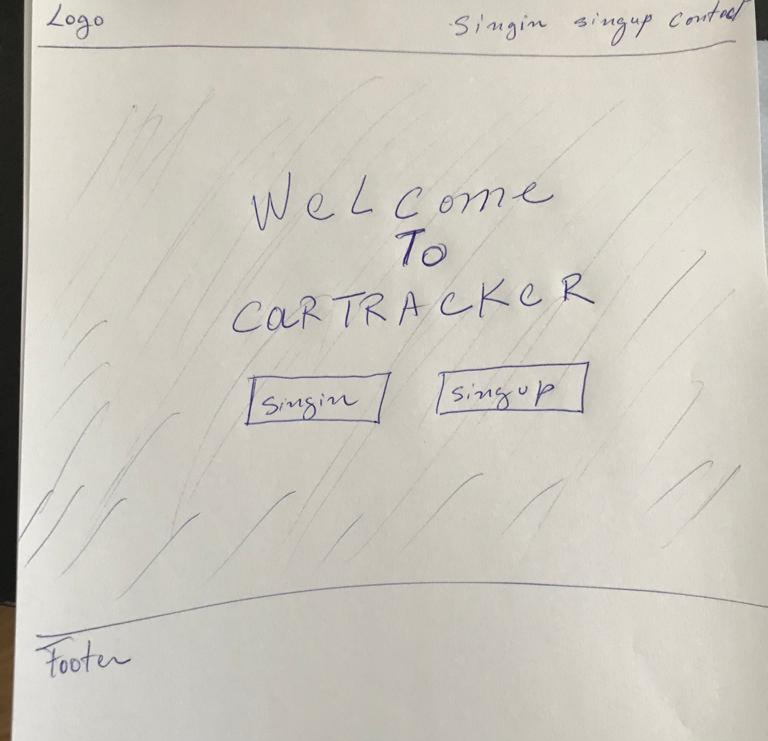 Logo
Singin singup contact
Welcome
To
CaRTRACKeR
singin
singup
Footer